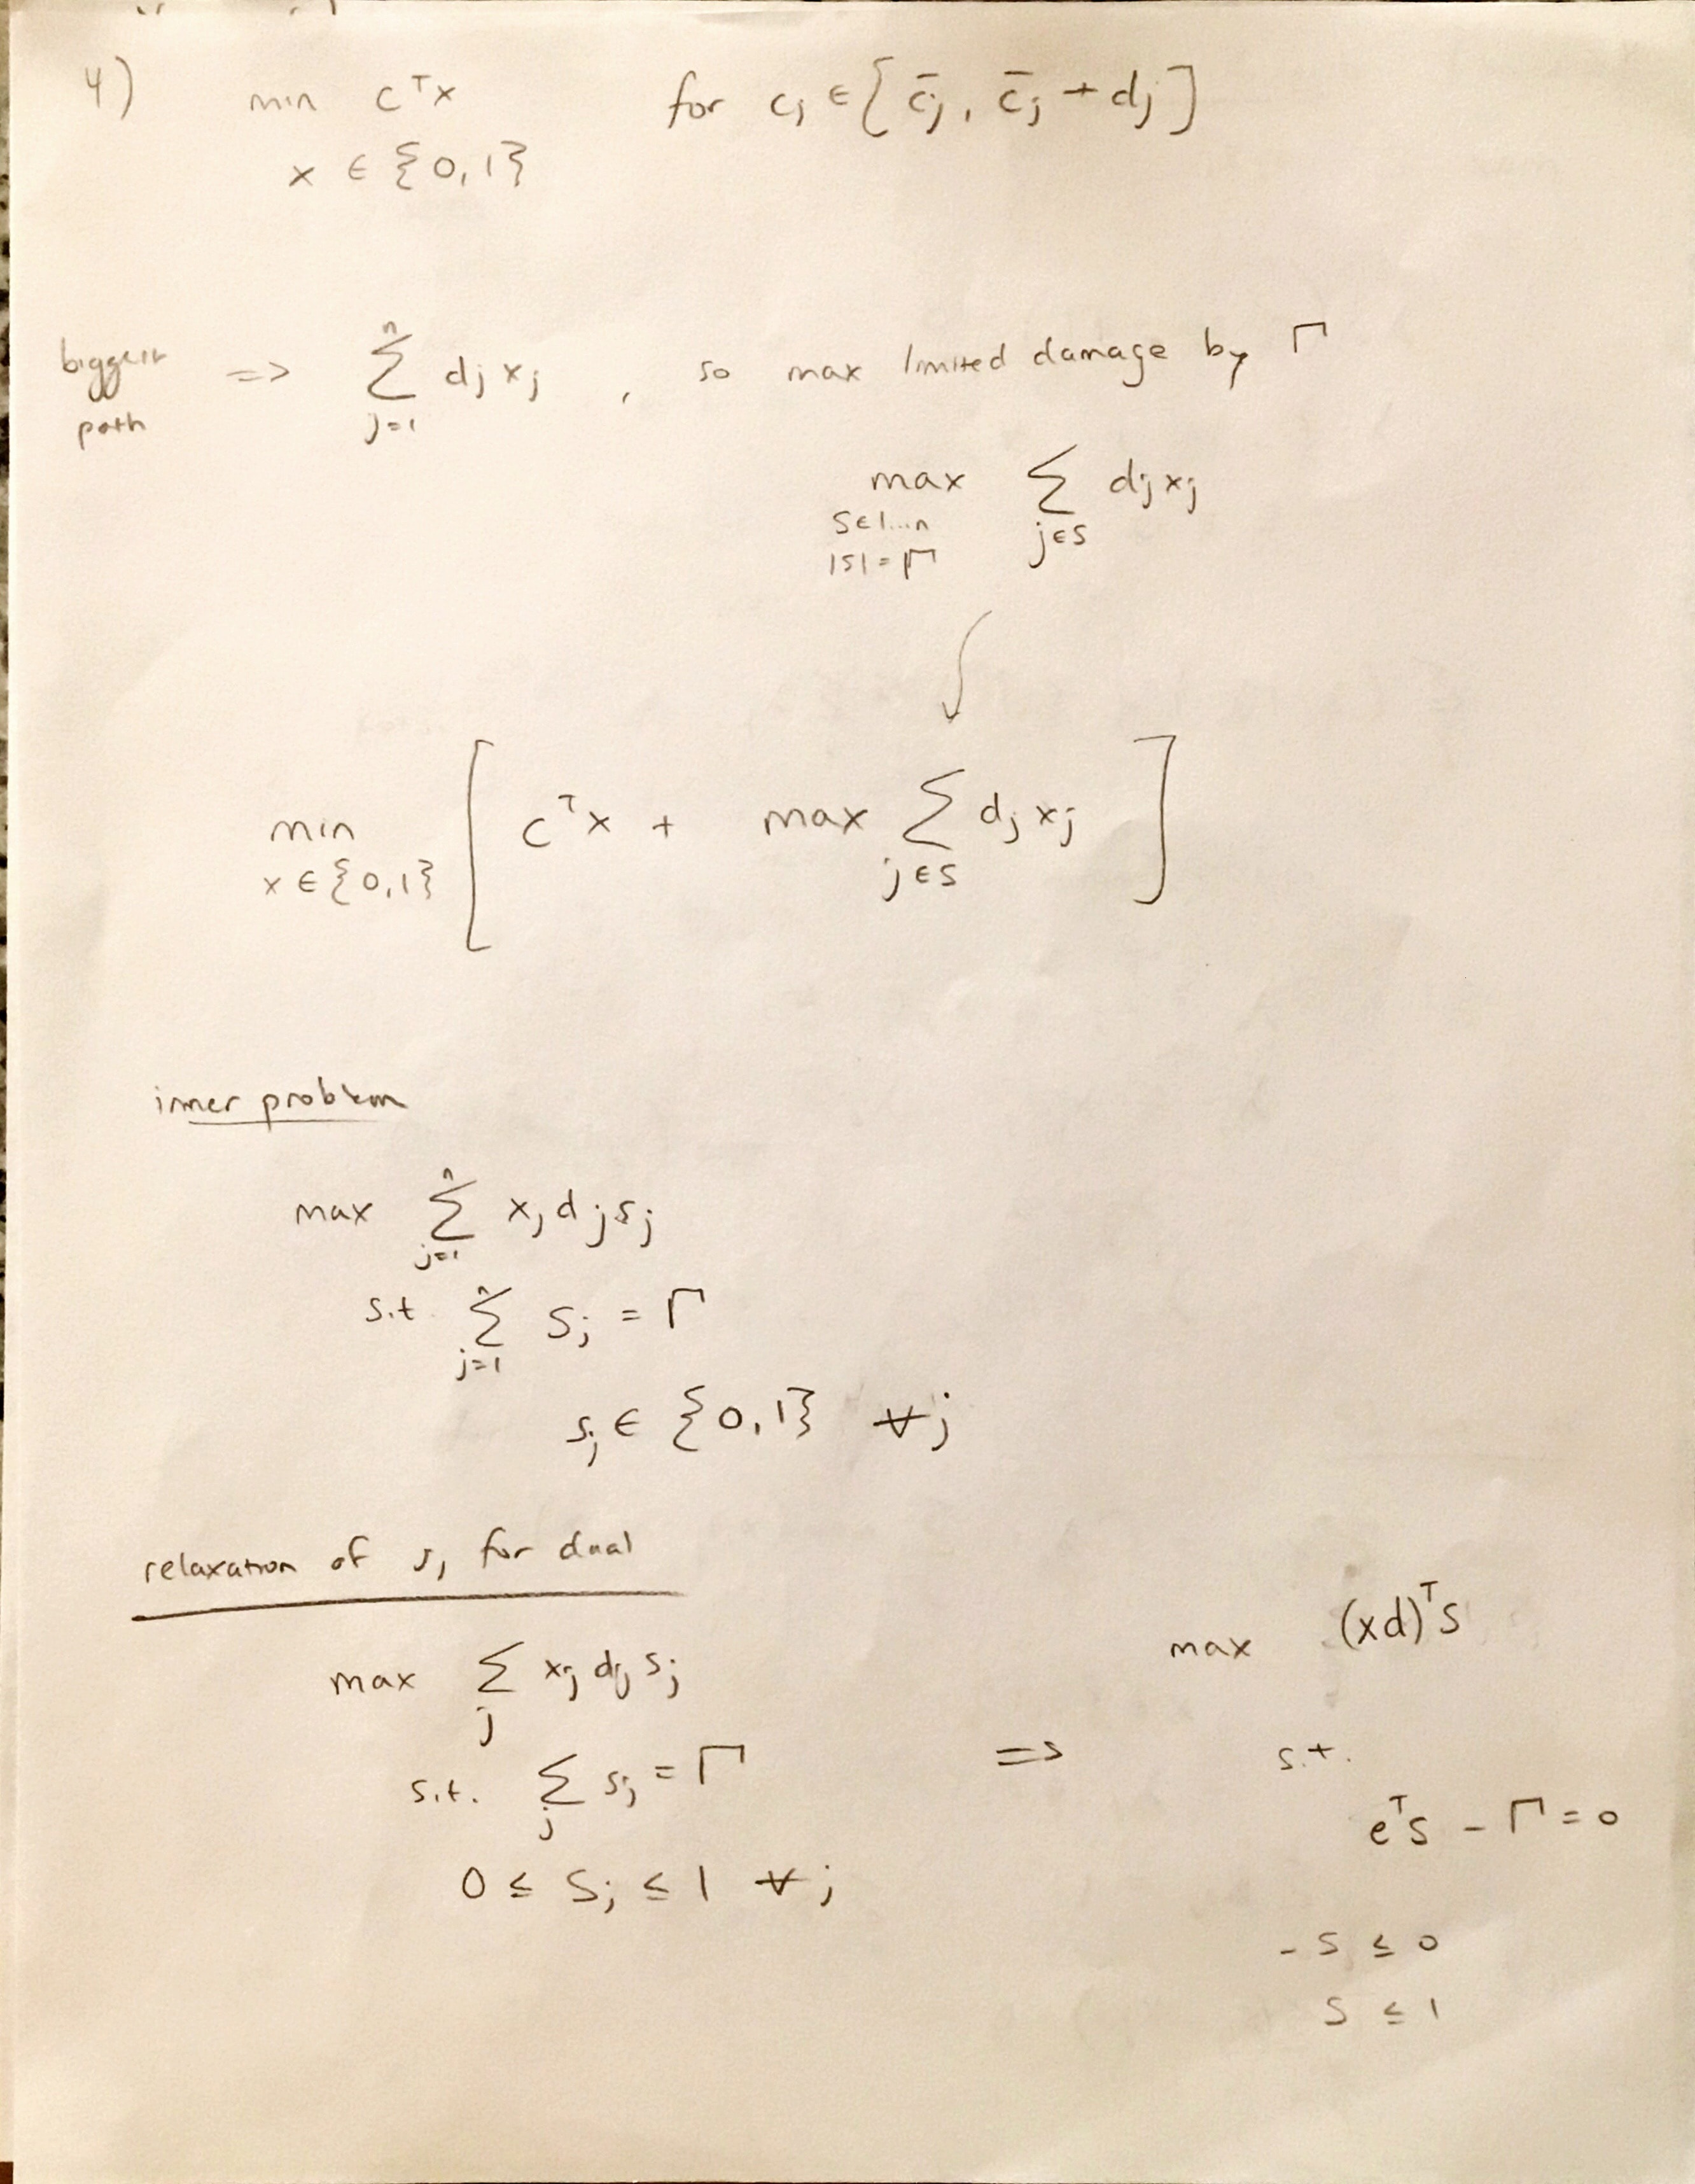 4) min cᵀx for cⱼ ∈ [c̄ⱼ, c̄ⱼ + dⱼ]
x ∈ {0,1}
biggest path => ∑_{j=1}^{n} dⱼ xⱼ , so max limited damage by Γ
max ∑_{j∈S} dⱼ xⱼ
S∈1...n
|S| = Γ
min_{x ∈ {0,1}} [ cᵀx + max ∑_{j∈S} dⱼ xⱼ ]
inner problem
max ∑_{j=1}^{n} xⱼ dⱼ sⱼ
s.t. ∑_{j=1}^{n} sⱼ = Γ
sⱼ ∈ {0,1} ∀j
relaxation of sⱼ for dual
max ∑_j xⱼ dⱼ sⱼ
s.t. ∑_j sⱼ = Γ
0 ≤ sⱼ ≤ 1 ∀j
=>
max (xd)ᵀs
s.t.
eᵀs - Γ = 0
-s ≤ 0
s ≤ 1